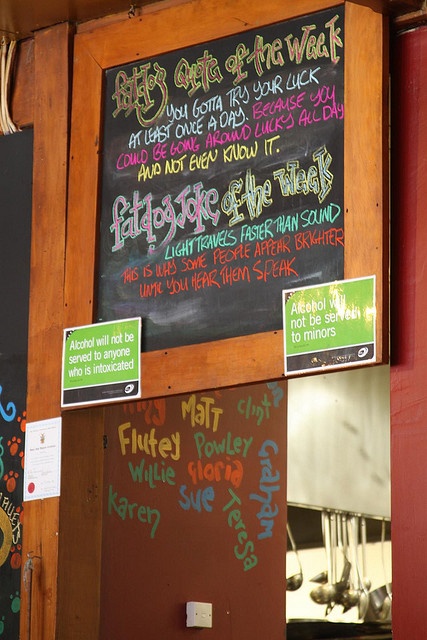 fatdog Quote of the Week
YOU GOTTA TRY YOUR LUCK
AT LEAST ONCE A DAY. BECAUSE YOU
COULD BE GOING AROUND LUCKY ALL DAY
AND NOT EVEN KNOW IT.
fatdog Joke of the Week
LIGHT TRAVELS FASTER THAN SOUND
THIS IS WHY SOME PEOPLE APPEAR BRIGHTER
UNTIL YOU HEAR THEM SPEAK
Alcohol will not be
served to anyone
who is intoxicated
Alcohol will
not be served
to minors
Matt
Clint
Flutey
Powley
Willie
Gloria
Graham
Sue
Karen
Teresa